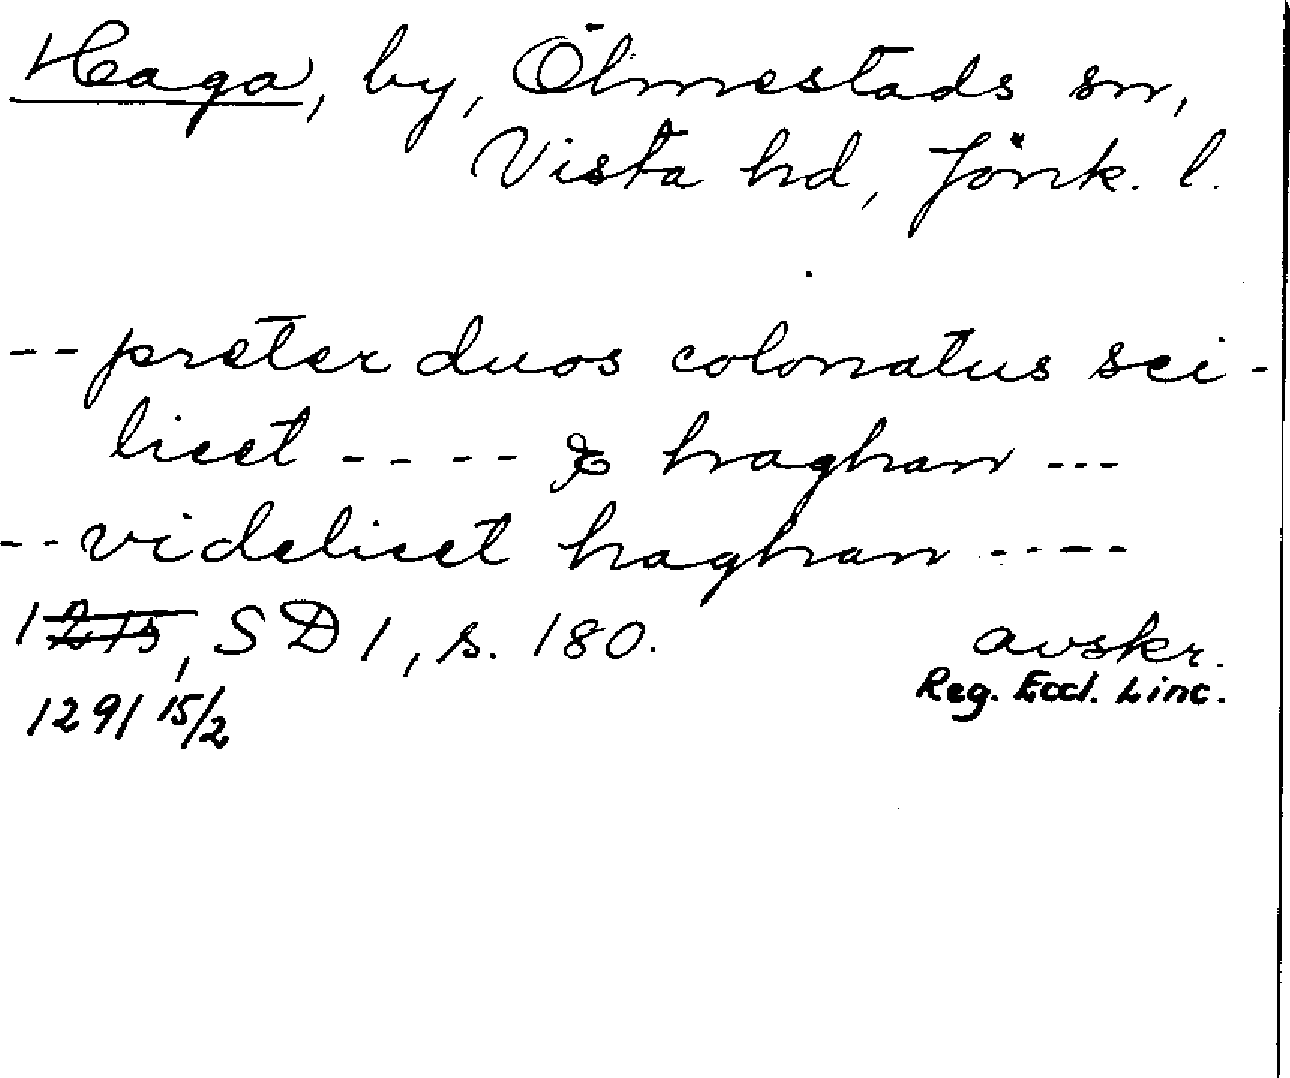 Haga, by, Ölmestads sn,
Vista hd, Jönk. l.
-- preter duos colonatus sci-
licet ---- & haghan ---
-- videlicet haghan ----
1215, SD 1, s. 180. avskr.
1291 15/2 Reg. Eccl. Linc.